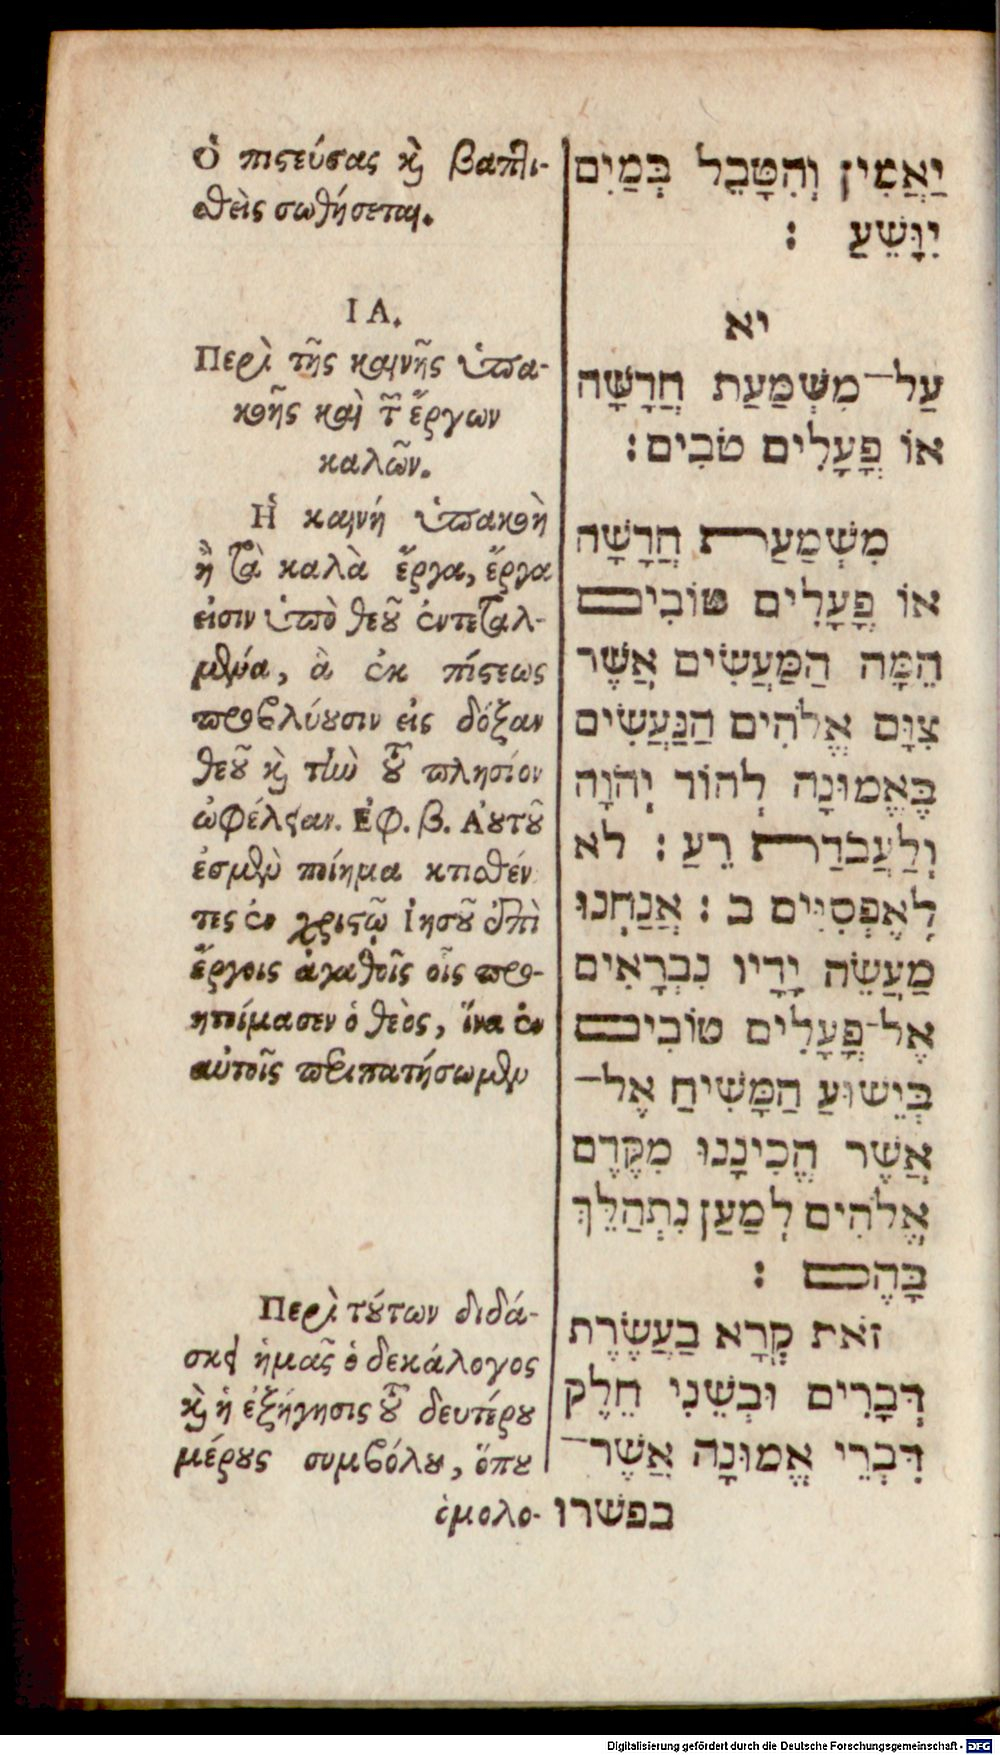 Ὁ πιϛεύσας κὴ βαπτι-
σθεὶς σωθήσεται.
ΙΑ.
Περὶ τῆς καινῆς ὑπα-
κοῆς καὶ τ῀ ἔργων
καλῶν.
Ἡ καινή ὑπακοὴ
ἢ τὰ καλὰ ἔργα, ἔργα
εἰσιν ὑπὸ θεȣ῀ ἐντεταλ-
μένα, ἃ ἐκ πίϛεως
προβλύȣσιν εἰς δόξαν
θεȣ῀ κὴ τὴν τȣ῀ πλησίον
ὠφέλειαν. Ἐφ. β. Αὐτȣ῀
ἐσμὲν ποίημα κτισθέν
τες ἐν χριϛῷ Ἰησȣ῀ ἐπὶ
ἔργοις ἀγαθοῖς οἷς προ-
ητοίμασεν ὁ θεὸς, ἵνα ἐν
αὐτοῖς περιπατήσωμεν
Περὶ τȣ́των διδά-
σκει ἡμᾶς ὁ δεκάλογος
κὴ ἡ ἐξήγησις τȣ῀ δευτέρȣ
μέρȣς συμβόλȣ, ὅπȣ
ὁμολο-
יַאֲמִין וְהִטָּבֵל בְּמַיִם
יִוָּשֵׁעַ :
יא
עַל־מִשְׁמַּעַת חֲדָשָׁה
אוֹ פָּעֳלִים טֹבִים:
מִשְׁמַעַת חֲדָשָׁה
אוֹ פָּעֳלִים טוֹבִים
הֵמָּה הַמַּעֲשִׂים אֲשֶׁר
צִוָּם אֱלֹהִים הַנַּעֲשִׂים
בֶּאֱמוּנָה לְהוֹד יְהֹוָה
וְלַעֲבֹדַת רֵעַ : לא
לְאֶפְסִיִּים ב : אֲנַחְנוּ
מַעֲשֵׂה יָדָיו נִבְרָאִים
אֶל־פָּעֳלִים טוֹבִים
בְּיֵשׁוּעַ הַמָּשִׁיחַ אֶל־
אֲשֶׁר הֱכִינָנוּ מִקֶּדֶם
אֱלֹהִים לְמַעַן נִתְהַלֵּךְ
בָּהֶם :
זֹאת קְרָא בַעֲשֶׂרֶת
דְּבָרִים וּבְשֵׁנִי חֵלֶק
דִּבְרֵי אֱמוּנָה אֲשֶׁר־
בפשרו
Digitalisierung gefördert durch die Deutsche Forschungsgemeinschaft - DFG